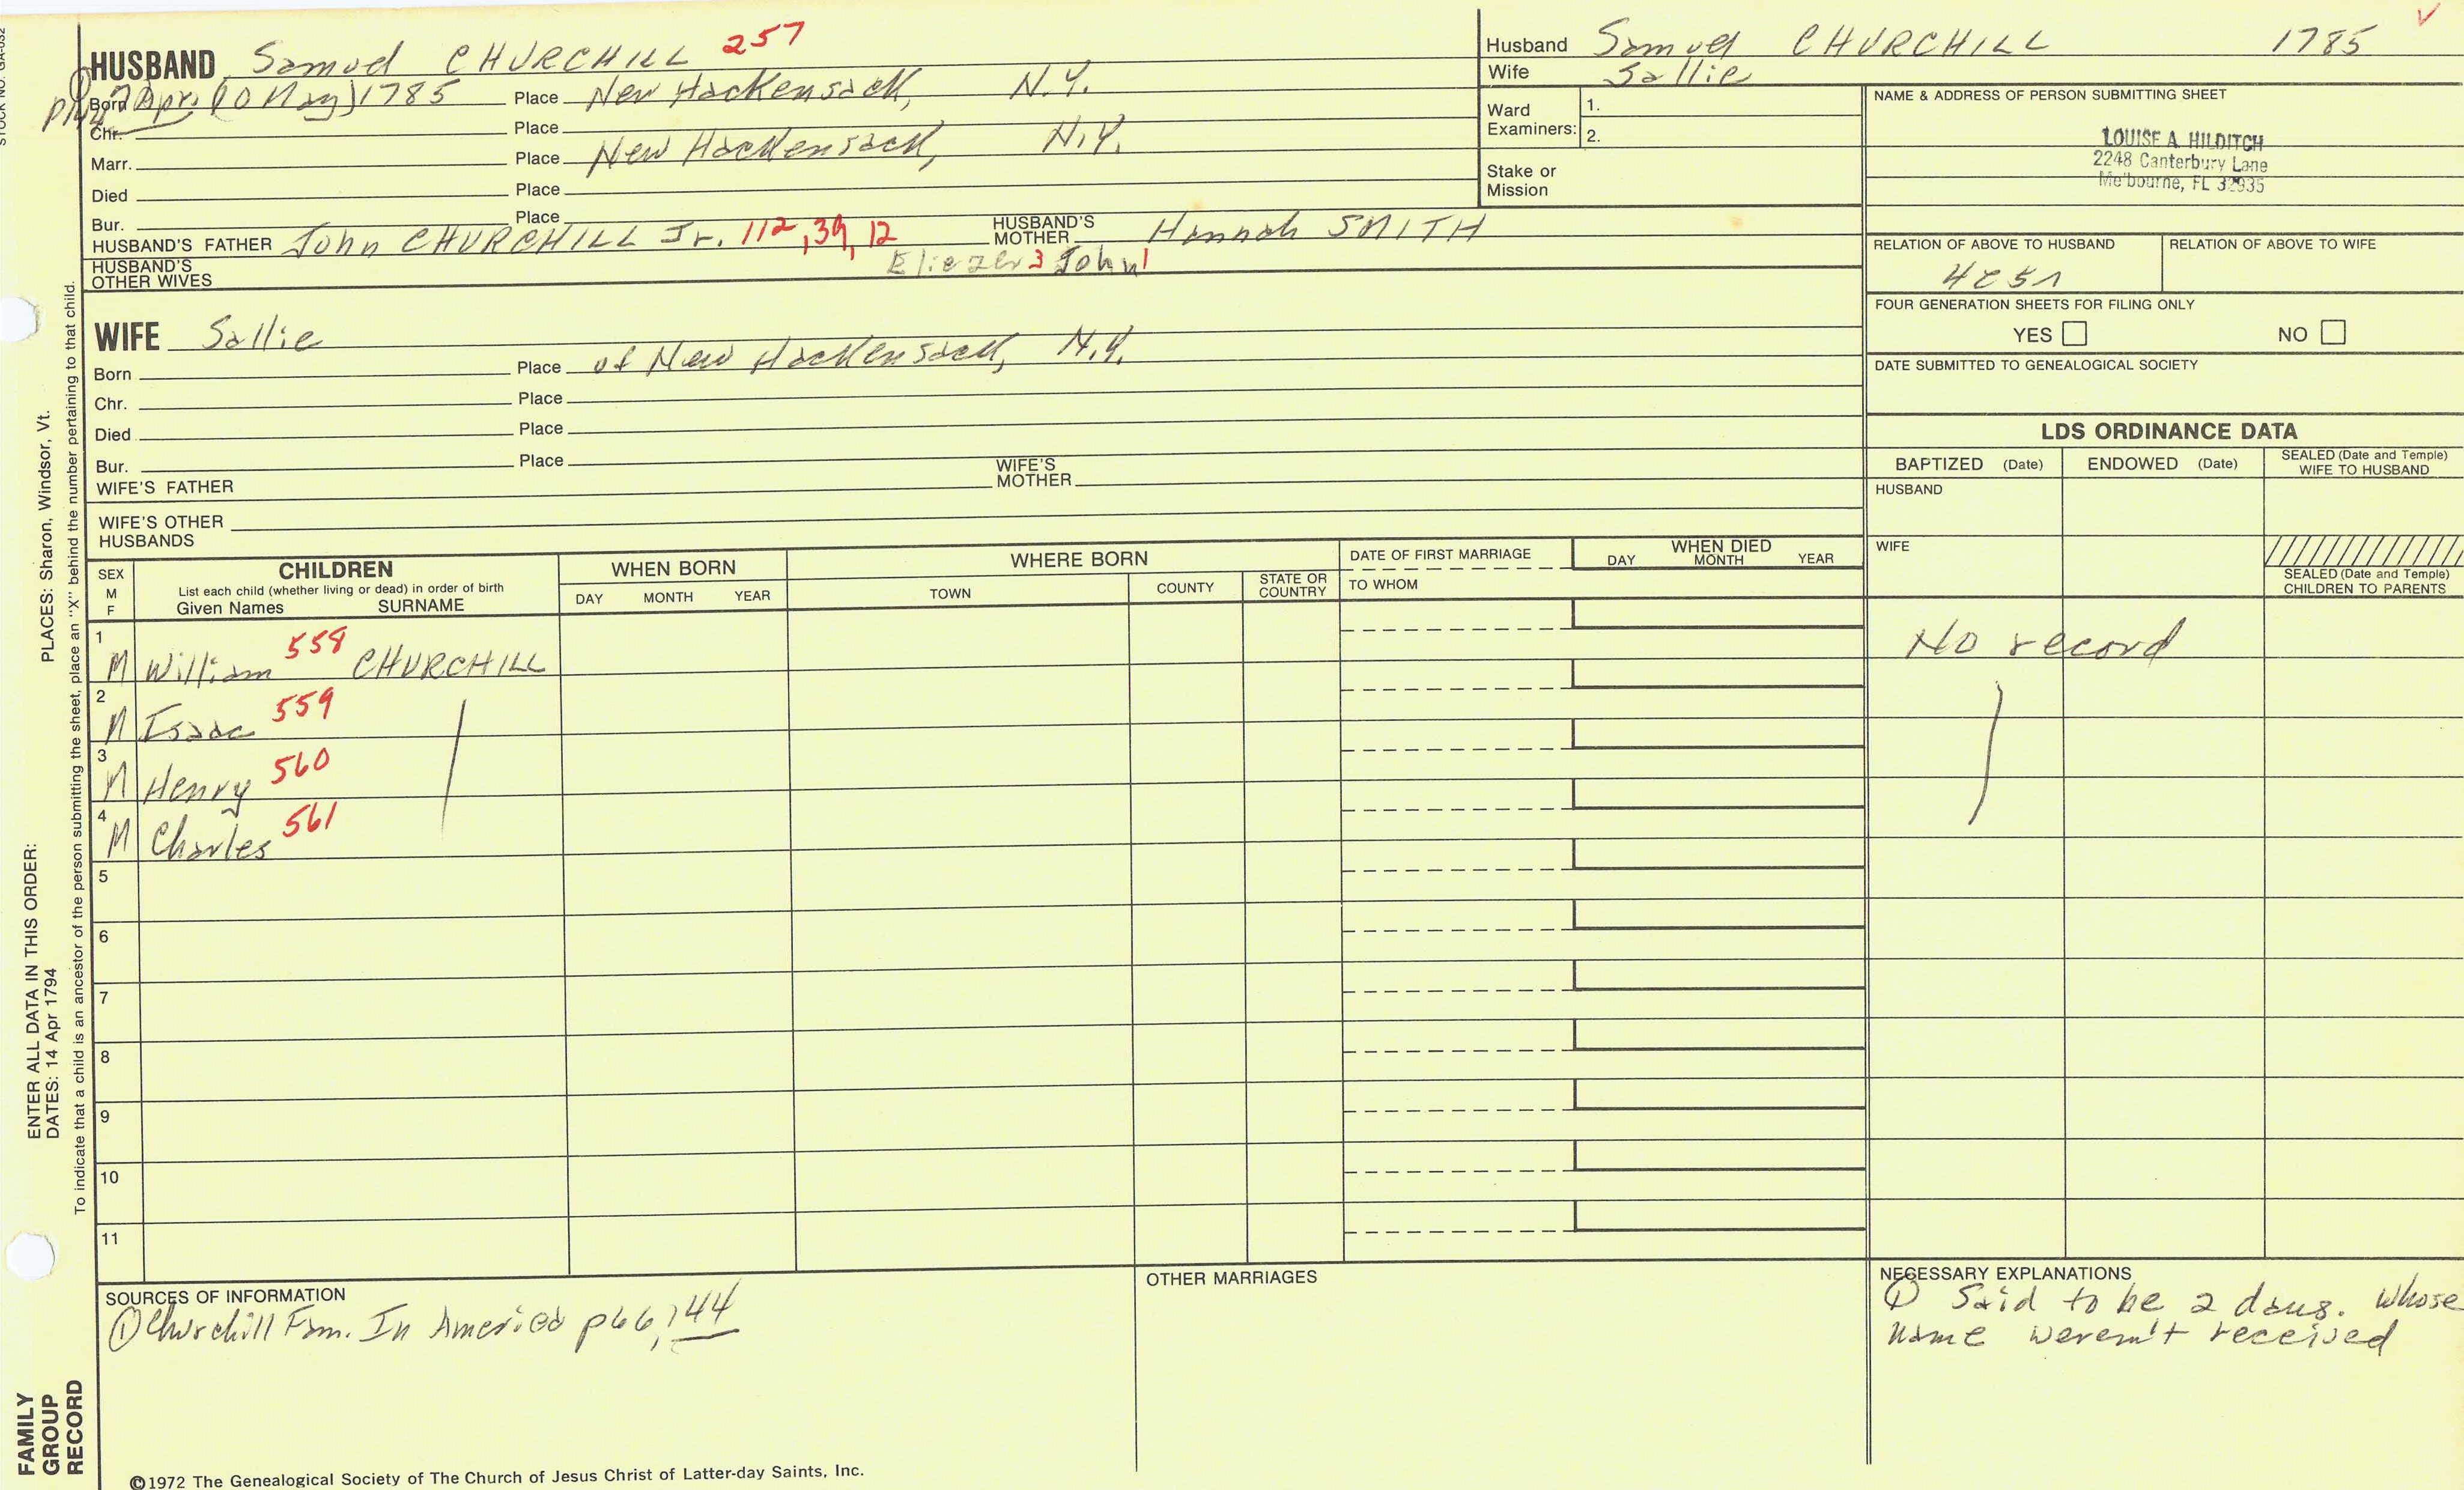 STOCK NO. GA-032
PLACES: Sharon, Windsor, Vt.
ENTER ALL DATA IN THIS ORDER:
DATES: 14 Apr 1794
To indicate that a child is an ancestor of the person submitting the sheet, place an "X" behind the number pertaining to that child.
FAMILY
GROUP
RECORD
HUSBAND Samuel CHURCHILL 257
Born Apr. (0 May) 1785 Place New Hackensack, N.Y.
Chr. Place
Marr. Place New Hackensack, N.Y.
Died Place
Bur. Place
HUSBAND'S FATHER John CHURCHILL Jr. 112, 39, 12 HUSBAND'S MOTHER Hannah SMITH
Eliezer 3 John 1
HUSBAND'S
OTHER WIVES
WIFE Sallie
Born Place of New Hackensack, N.Y.
Chr. Place
Died Place
Bur. Place
WIFE'S FATHER WIFE'S MOTHER
WIFE'S OTHER
HUSBANDS
Husband Samuel CHURCHILL 1785
Wife Sallie
Ward
Examiners:
1.
2.
Stake or
Mission
NAME & ADDRESS OF PERSON SUBMITTING SHEET
LOUISE A. HILDITCH
2248 Canterbury Lane
Melbourne, FL 32935
RELATION OF ABOVE TO HUSBAND RELATION OF ABOVE TO WIFE
4C5R
FOUR GENERATION SHEETS FOR FILING ONLY
YES NO
DATE SUBMITTED TO GENEALOGICAL SOCIETY
LDS ORDINANCE DATA
BAPTIZED (Date) ENDOWED (Date) SEALED (Date and Temple) WIFE TO HUSBAND
HUSBAND
WIFE
SEALED (Date and Temple)
CHILDREN TO PARENTS
SEX
M
F
CHILDREN
List each child (whether living or dead) in order of birth
Given Names SURNAME
WHEN BORN
DAY MONTH YEAR
WHERE BORN
TOWN COUNTY STATE OR COUNTRY
DATE OF FIRST MARRIAGE
TO WHOM
WHEN DIED
DAY MONTH YEAR
1
M William 558 CHURCHILL No record
2
M Isaac 559
3
M Henry 560
4
M Charles 561
5
6
7
8
9
10
11
SOURCES OF INFORMATION
① Churchill Fam. In America p66, 144
OTHER MARRIAGES
NECESSARY EXPLANATIONS
① Said to be 2 daus. whose
name weren't received
©1972 The Genealogical Society of The Church of Jesus Christ of Latter-day Saints, Inc.